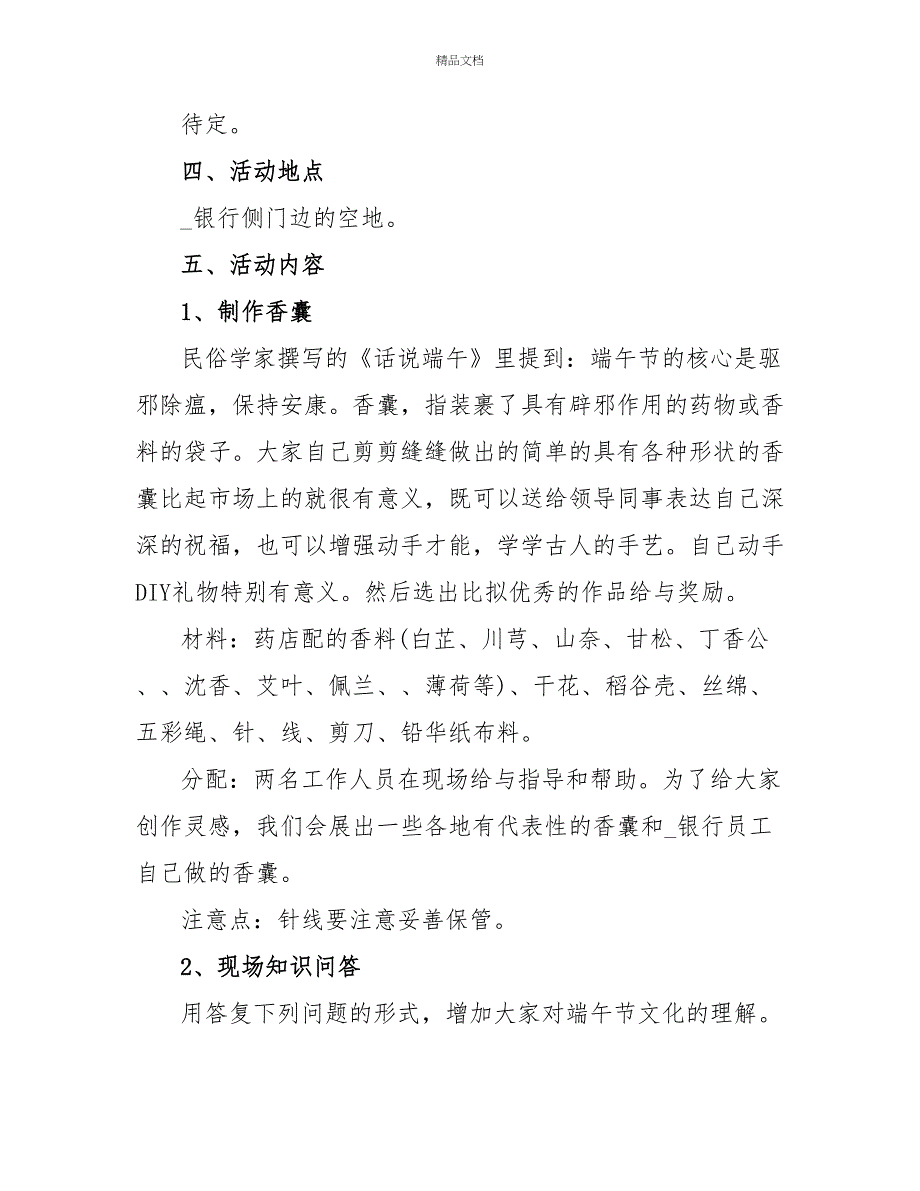 精品文档
待定。
四、活动地点
_银行侧门边的空地。
五、活动内容
1、制作香囊
民俗学家撰写的《话说端午》里提到：端午节的核心是驱
邪除瘟，保持安康。香囊，指装裹了具有辟邪作用的药物或香
料的袋子。大家自己剪剪缝缝做出的简单的具有各种形状的香
囊比起市场上的就很有意义，既可以送给领导同事表达自己深
深的祝福，也可以增强动手才能，学学古人的手艺。自己动手
DIY礼物特别有意义。然后选出比拟优秀的作品给与奖励。
材料：药店配的香料(白芷、川芎、山奈、甘松、丁香公
、、沈香、艾叶、佩兰、、薄荷等)、干花、稻谷壳、丝绵、
五彩绳、针、线、剪刀、铅华纸布料。
分配：两名工作人员在现场给与指导和帮助。为了给大家
创作灵感，我们会展出一些各地有代表性的香囊和_银行员工
自己做的香囊。
注意点：针线要注意妥善保管。
2、现场知识问答
用答复下列问题的形式，增加大家对端午节文化的理解。